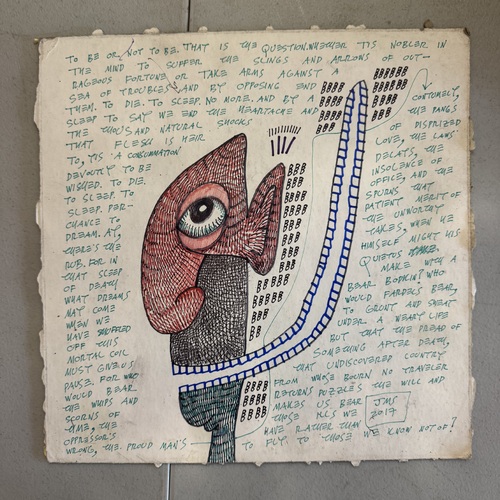 TO BE OR NOT TO BE. THAT IS THE QUESTION. WHETHER TIS NOBLER IN
THE MIND TO SUFFER THE SLINGS AND ARROWS OF OUT-
RAGEOUS FORTUNE OR TAKE ARMS AGAINST A
SEA OF TROUBLES AND BY OPPOSING END
THEM. TO DIE. TO SLEEP. NO MORE. AND BY A
SLEEP TO SAY WE END THE HEARTACHE AND
THE THOUSAND NATURAL SHOCKS
THAT FLESH IS HEIR
TO, TIS A CONSUMMATION
DEVOUTLY TO BE
WISHED. TO DIE.
TO SLEEP. TO
SLEEP. PER-
CHANCE TO
DREAM. AY,
THERE'S THE
RUB. FOR IN
THAT SLEEP
OF DEATH
WHAT DREAMS
MAY COME
WHEN WE
HAVE SHUFFLED
OFF THIS
MORTAL COIL
MUST GIVE US
PAUSE. FOR WHO
WOULD BEAR
THE WHIPS AND
SCORNS OF
TIME, THE
OPPRESSOR'S
WRONG, THE PROUD MAN'S
CONTUMELY,
THE PANGS
OF DISPRIZED
LOVE, THE LAWS
DELAYS, THE
INSOLENCE OF
OFFICE, AND THE
SPURNS THAT
PATIENT MERIT OF
THE UNWORTHY
TAKES, WHEN HE
HIMSELF MIGHT HIS
QUIETUS
MAKE WITH A
BEAR BODKIN? WHO
WOULD FARDELS BEAR,
TO GRUNT AND SWEAT
UNDER A WEARY LIFE
BUT THAT THE DREAD OF
SOMETHING AFTER DEATH,
THAT UNDISCOVERED COUNTRY
FROM WHOSE BOURN NO TRAVELER
RETURNS PUZZLES THE WILL AND
MAKES US BEAR
THOSE ILLS WE
HAVE RATHER THAN
TO FLY. TO THOSE WE KNOW NOT OF?
JMS
2017